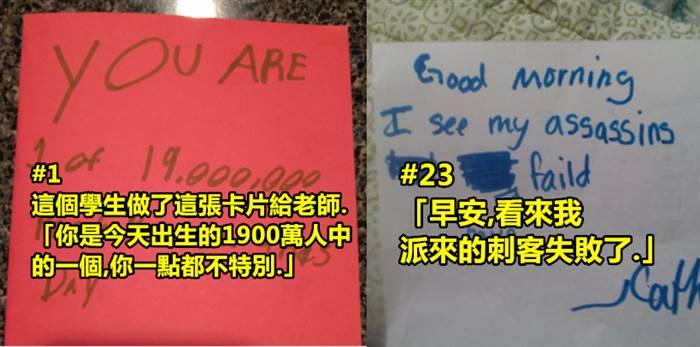 YOU ARE
1 of 19.000,000
#1
這個學生做了這張卡片給老師.
「你是今天出生的1900萬人中
的一個,你一點都不特別.」
DAY
Good morning
I see my assassins
faild
#23
「早安,看來我
派來的刺客失敗了.」